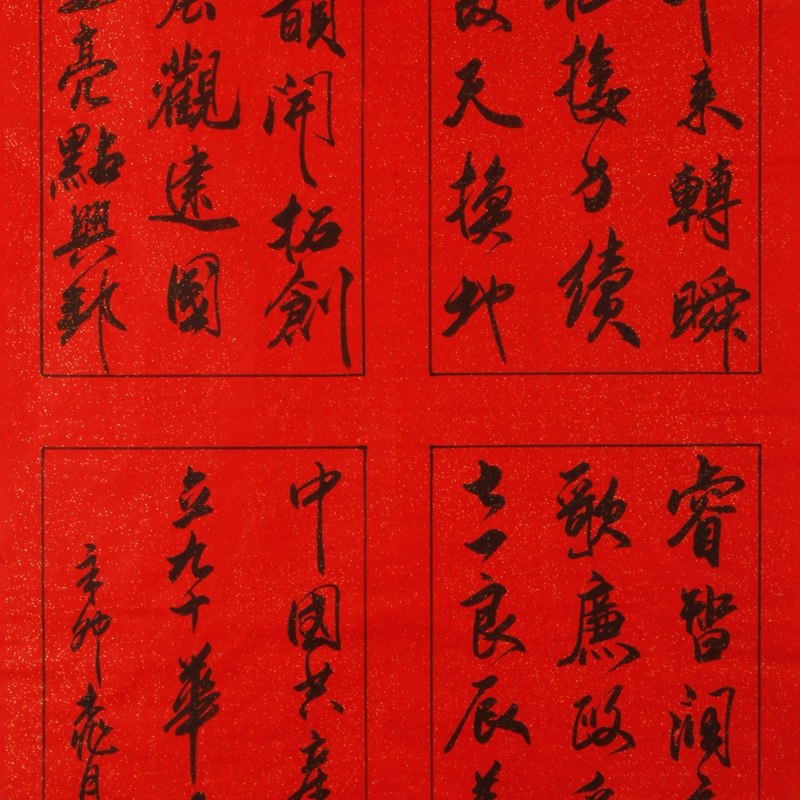 来轉瞬
接力續
天換地
韻開拓創
觀遠圖
亮點興邦
睿智润
歌廉政
七一良辰
中國共產
立九十華
辛卯歲月